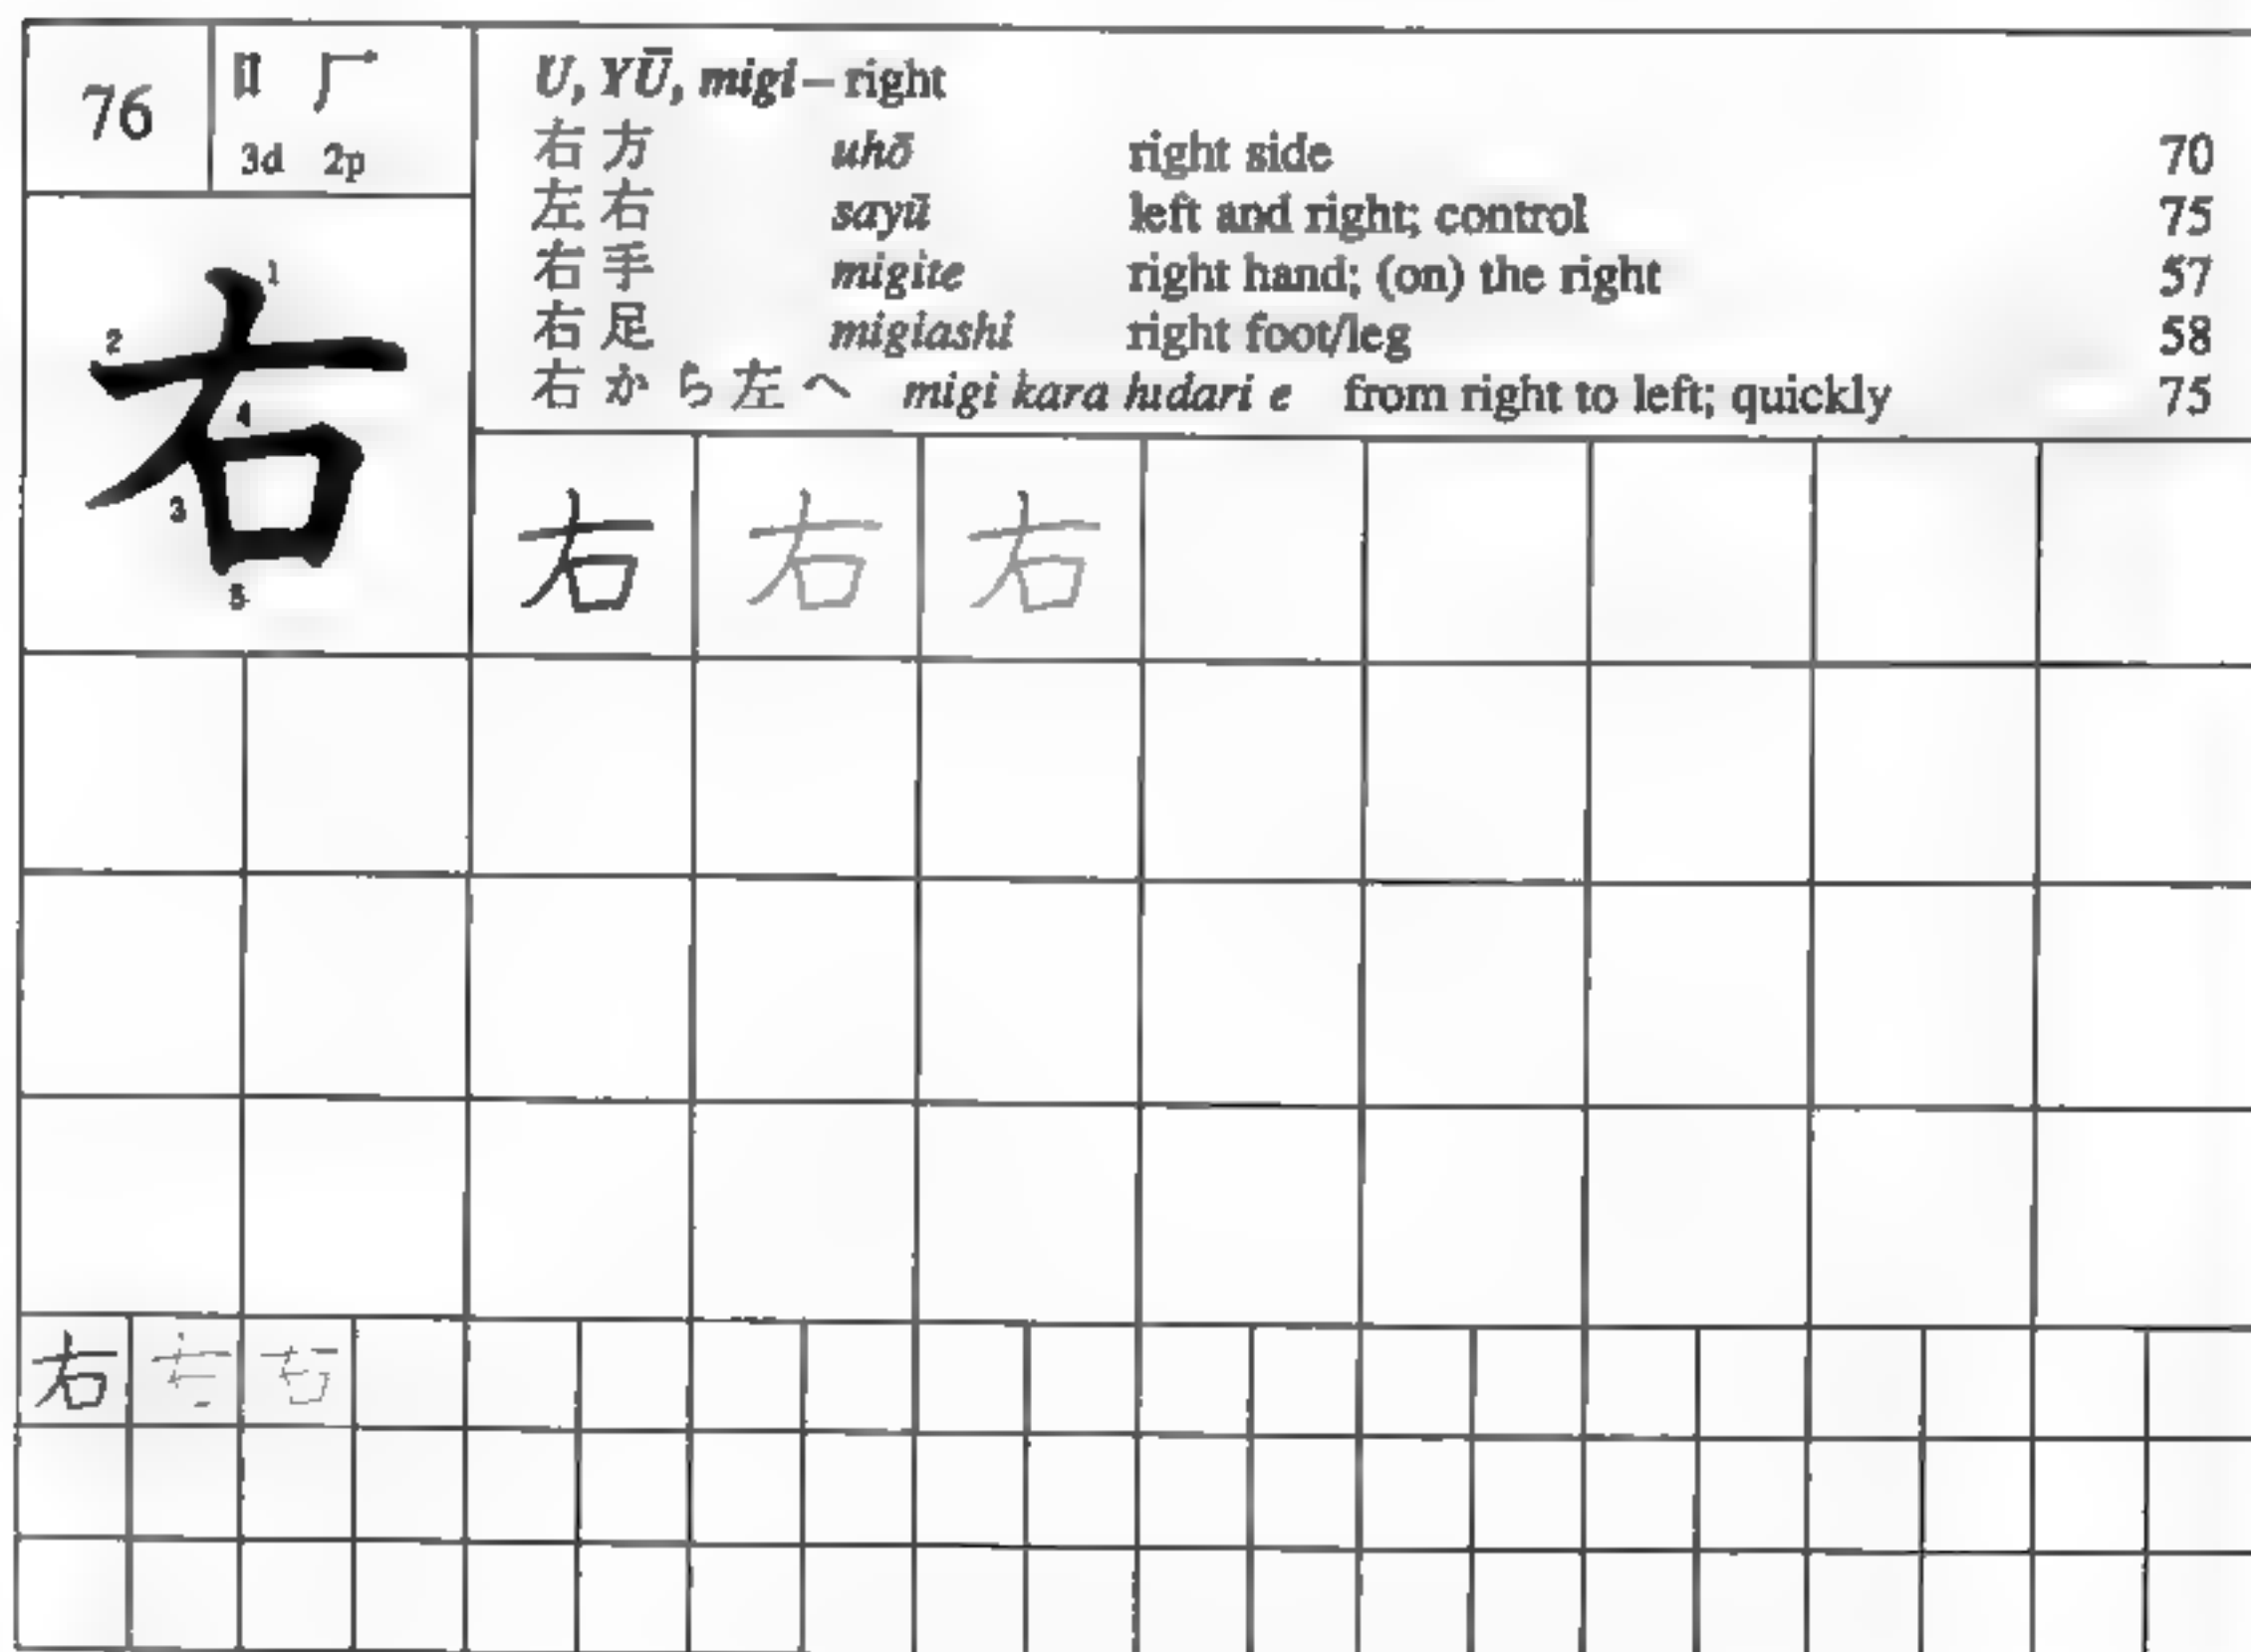 76
口 厂
3d 2p
U, YŪ, migi – right
右方 uhō right side 70
左右 sayū left and right; control 75
右手 migite right hand; (on) the right 57
右足 migiashi right foot/leg 58
右から左へ migi kara hidari e from right to left; quickly 75
1
2
右
4
3
5
右 右 右
右 右 右